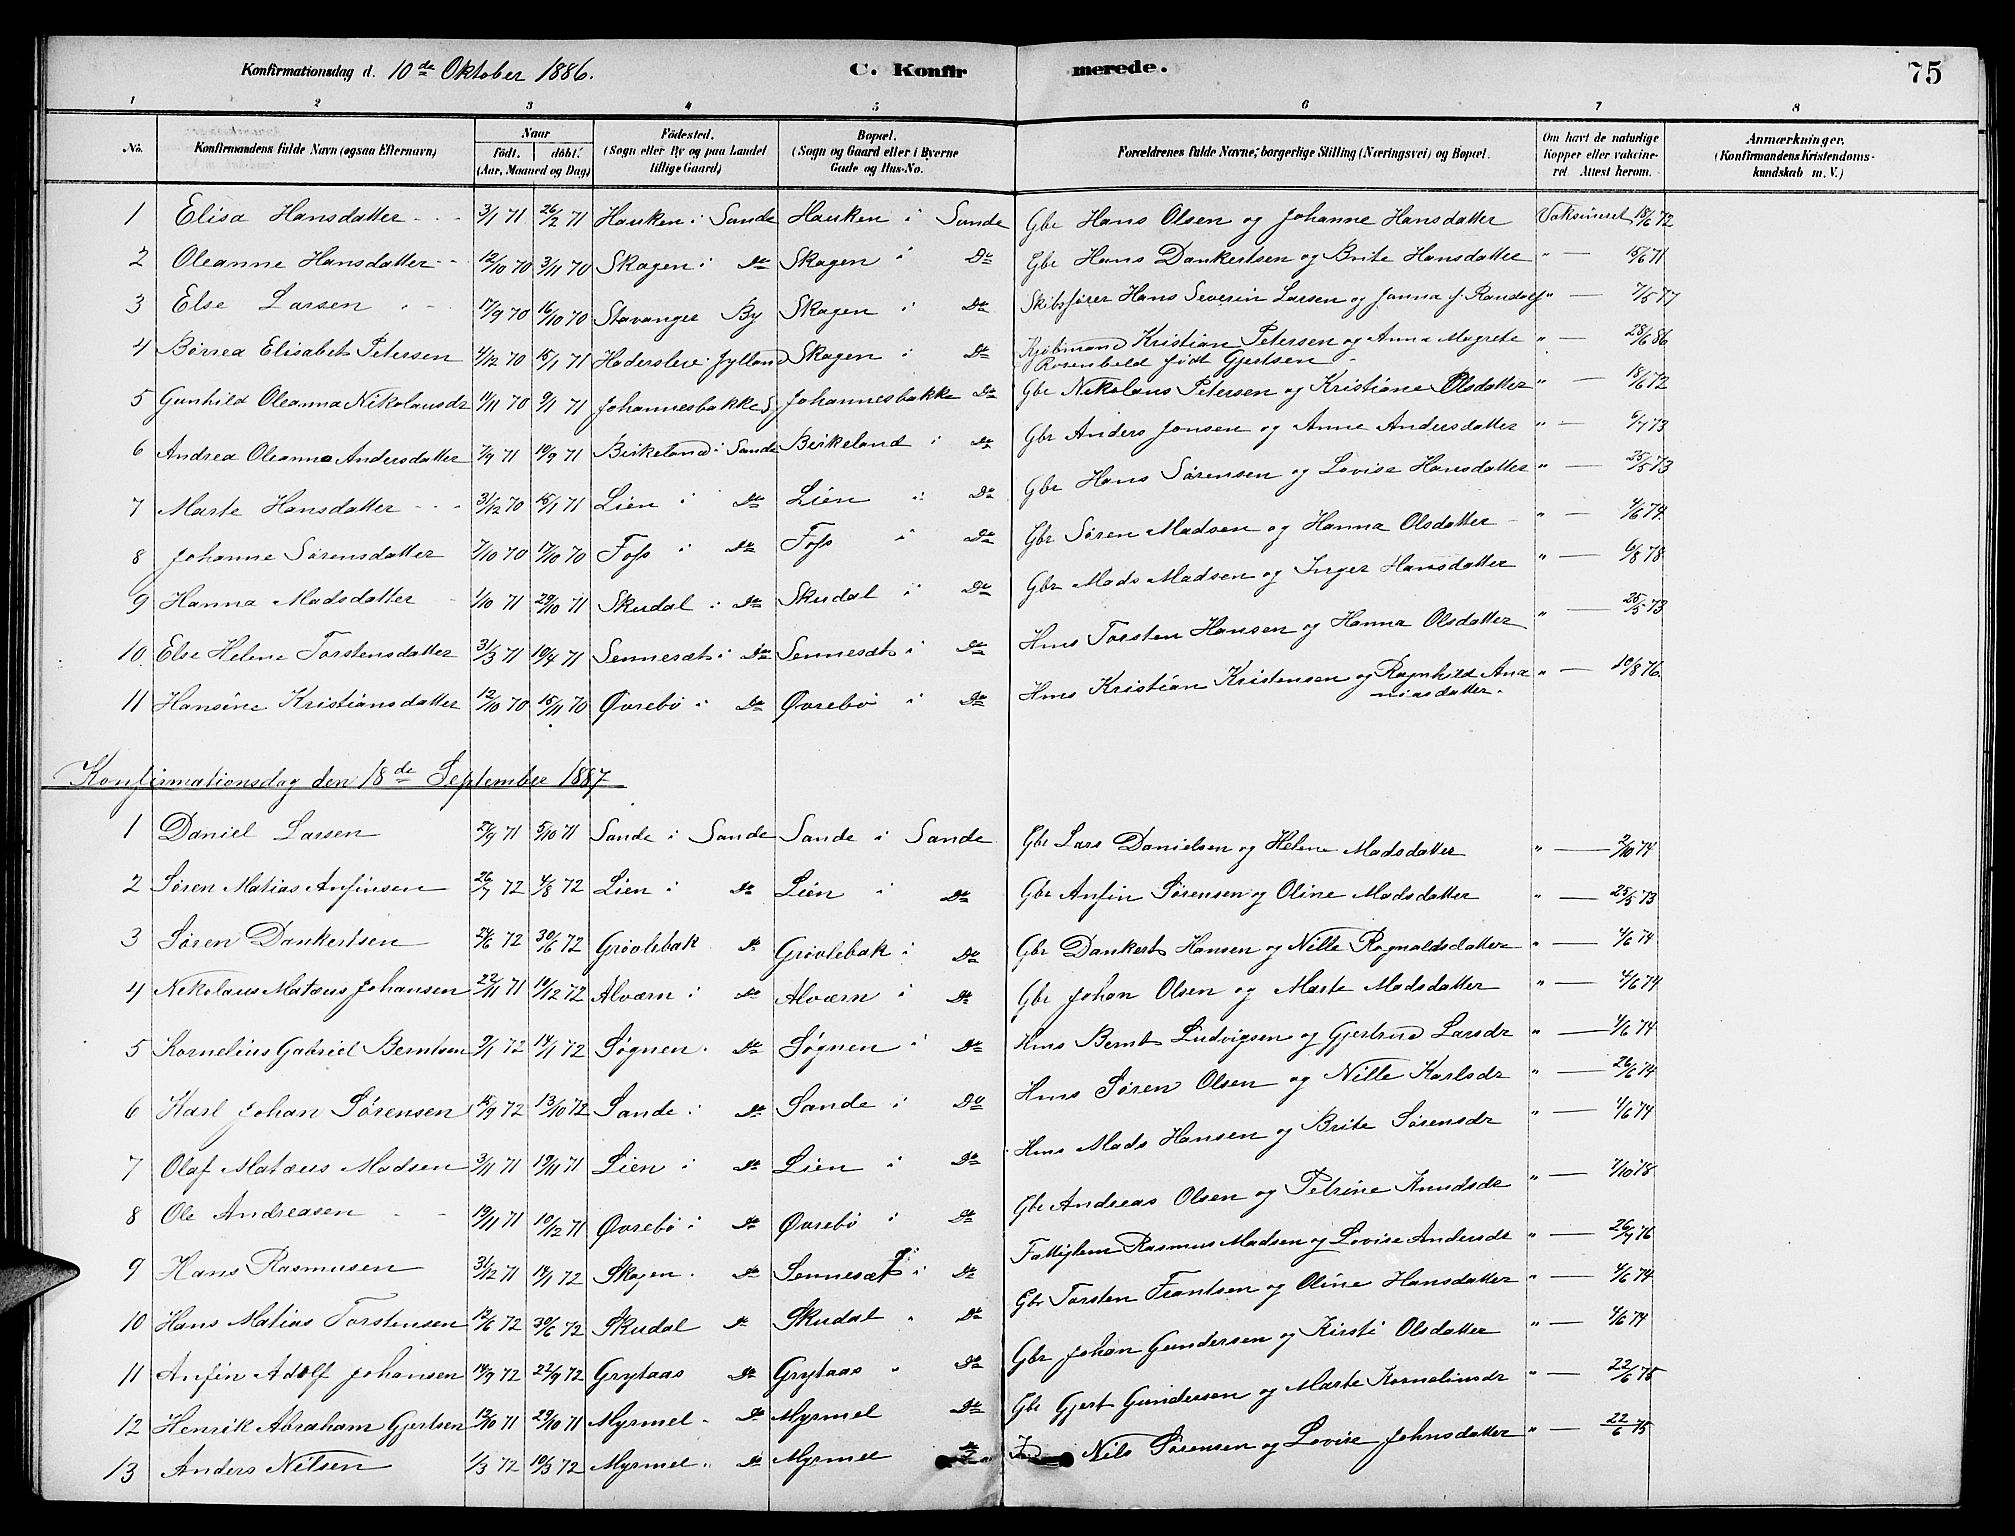 Konfirmationsdag d. 10de Oktober 1886. C. Konfirmerede. 75
1 2 3 4 5 6 7 8
No. Konfirmandens fulde Navn (ogsaa Efternavn) Naar födt. döbt. (Aar, Maaned og Dag) Födested. (Sogn eller By og paa Landet tillige Gaard) Bopæl. (Sogn og Gaard eller i Byerne Gade og Hus-No. Forældrenes fulde Navne, borgerlige Stilling (Næringsvei) og Bopæl. Om havt de naturlige Kopper eller vakcineret. Attest herom. Anmærkninger. (Konfirmandens Kristendomskundskab m. V.)
1 Elisa Hansdatter 3/1 71 26/2 71 Hauken i Sande Hauken i Sande Gbr Hans Olsen og Johanne Hansdatter Vaksineret 18/6 72
2 Oleanne Hansdatter 12/10 70 3/11 70 Skagen i Do Skagen i Do Gbr Hans Dankertsen og Brite Hansdatter " — 15/6 71
3 Else Larsen 17/9 70 16/10 70 Stavanger By Skagen i Do Skibsfører Hans Severin Larsen og Janna f. Randolf " — 7/5 77
4 Børrea Elisabet Petersen 4/12 70 15/1 71 Hadersleve Jylland Skagen i Do Kjøbmand Kristian Petersen og Anna Magrete Rosenbeld født Gjertsen " — 28/6 86
5 Gunhild Oleanna Nikolausdr 11/11 70 9/1 71 Johannesbakke Johannesbakke Do Gbr Nikolaus Petersen og Kristiane Olsdatter " — 18/6 72
6 Andrea Oleanna Andersdatter 7/9 71 10/9 71 Birkeland i Sande Birkeland i Do Gbr Anders Jonsen og Anne Andersdatter " — 6/7 73
7 Marte Hansdatter 31/12 70 15/1 71 Lien i Do Lien i Do Gbr Hans Sørensen og Lovise Hansdatter " — 25/5 73
8 Johanne Sørensdatter 7/10 70 17/10 70 Foss i Do Foss i Do Gbr Søren Madsen og Hanna Olsdatter " — 4/6 74
9 Hanna Madsdatter 1/10 71 29/10 71 Skudal i Do Skudal i Do Gbr Mads Madsen og Inger Hansdatter " — 6/8 78
10 Else Helene Torstensdatter 31/3 71 10/4 71 Sennesæt i Do Sennesæt i Do Hms Torsten Hansen og Hanna Olsdatter " — 25/5 73
11 Hansine Kristiansdatter 12/10 70 15/11 70 Øvrebø i Do Øvrebø i Do Hms Kristian Kristensen og Ragnhild Ananiasdatter " — 10/8 76
Konfirmationsdag den 18de September 1887
1 Daniel Larsen 27/9 71 5/10 71 Sande i Sande Sande i Sande Gbr Lars Danielsen og Helene Madsdatter " — 2/10 74
2 Søren Matias Anfinsen 26/7 72 4/8 72 Lien i Do Lien i Do Gbr Anfin Sørensen og Oline Madsdatter " — 25/5 73
3 Søren Dankertsen 24/6 72 30/6 72 Grøvlebak Do Grøvlebak i Do Gbr Dankert Hansen og Nille Ragnaldsdatter " — 4/6 74
4 Nikolaus Matæus Johansen 22/11 71 10/12 72 Alværn i Do Alværn i Do Gbr Johan Olsen og Marte Madsdatter " — 4/6 74
5 Kornelius Gabriel Berntsen 9/1 72 14/1 72 Søgnen Do Søgnen i Do Hms Bernt Ludvigsen og Gjertrud Larsdr " — 4/6 74
6 Karl Johan Sørensen 15/9 72 13/10 72 Sande i Do Sande i Do Hms Søren Olsen og Nille Karlsdr " — 26/6 74
7 Olaf Matæus Madsen 3/11 71 19/11 71 Lien i Do Lien i Do Hms Mads Hansen og Brite Sørensdr " — 4/6 74
8 Ole Andreasen 19/11 71 10/12 71 Øvrebø i Do Øvrebø i Do Gbr Andreas Olsen og Petrine Knudsdr " — 7/10 78
9 Hans Rasmusen 31/12 71 14/1 72 Skagen Do Sennesæt i Do Fattiglem Rasmus Madsen og Lovise Andersdr " — 26/7 76
10 Hans Matias Torstensen 12/6 72 30/6 72 Skudal Do Skudal Do Gbr Torsten Frantsen og Oline Hansdatter " — 4/6 74
11 Anfin Adolf Johansen 14/9 72 22/9 72 Grytaas Do Grytaas Do Gbr Johan Gundersen og Kirsti Olsdatter " — 4/6 74
12 Henrik Abraham Gjertsen 12/10 71 29/10 71 Myrmel Do Myrmel Do Gbr Gjert Gundersen og Marte Korneliusdr " — 22/6 75
13 Anders Nilsen 1/3 72 10/3 72 Myrmel Do Myrmel Nils Sørensen og Lovise Johnsdatter " — 22/6 75